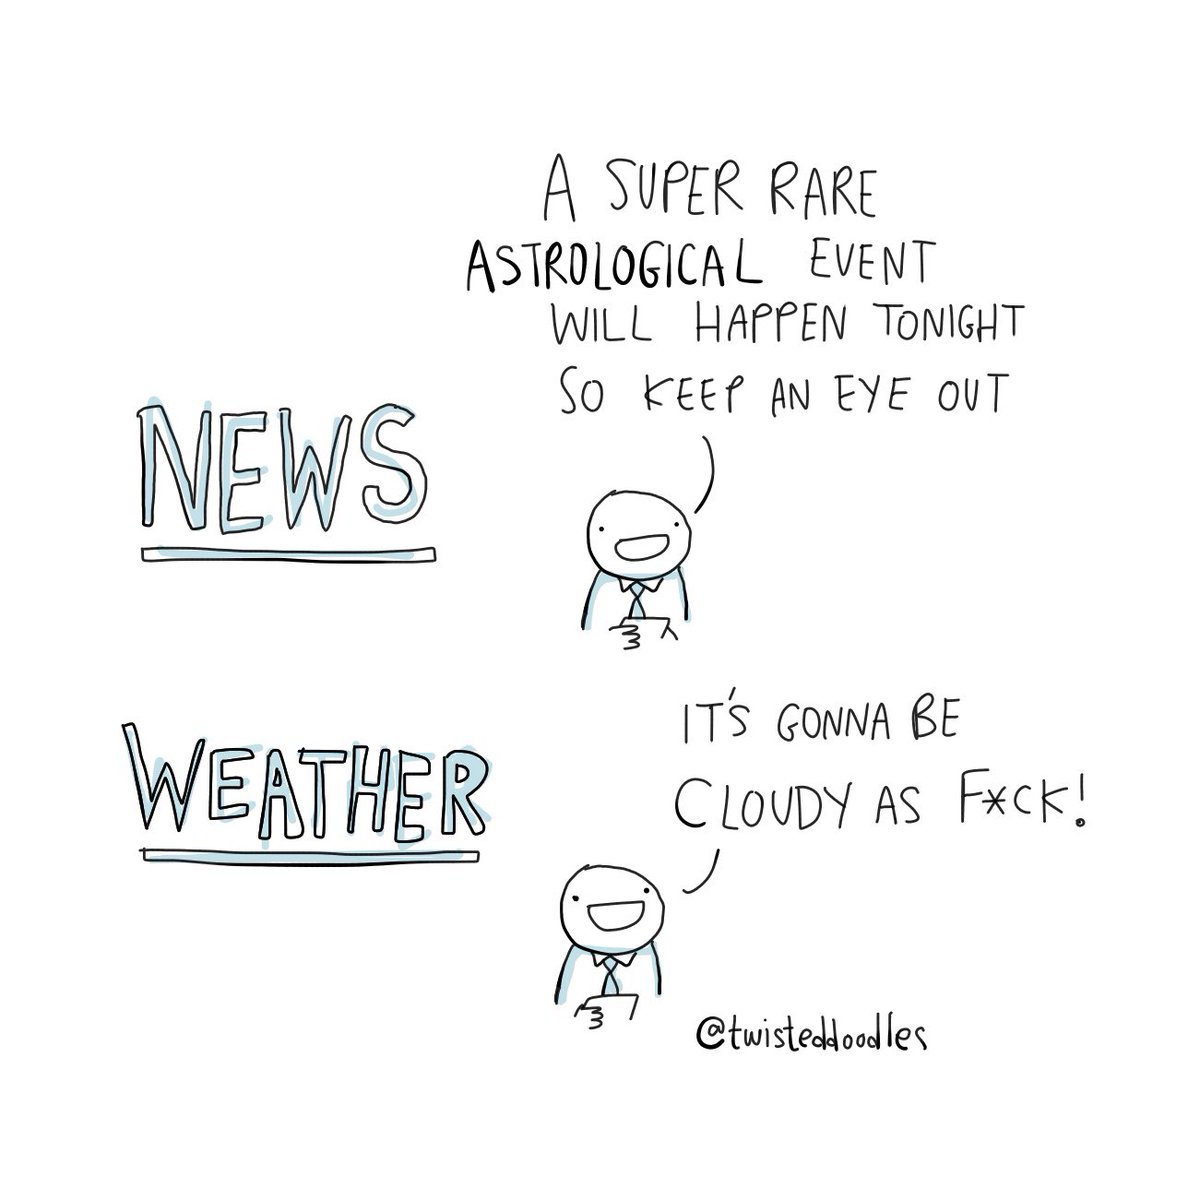 A SUPER RARE
ASTROLOGICAL EVENT
WILL HAPPEN TONIGHT
SO KEEP AN EYE OUT
NEWS
IT'S GONNA BE
CLOUDY AS F*CK!
WEATHER
@twisteddoodles